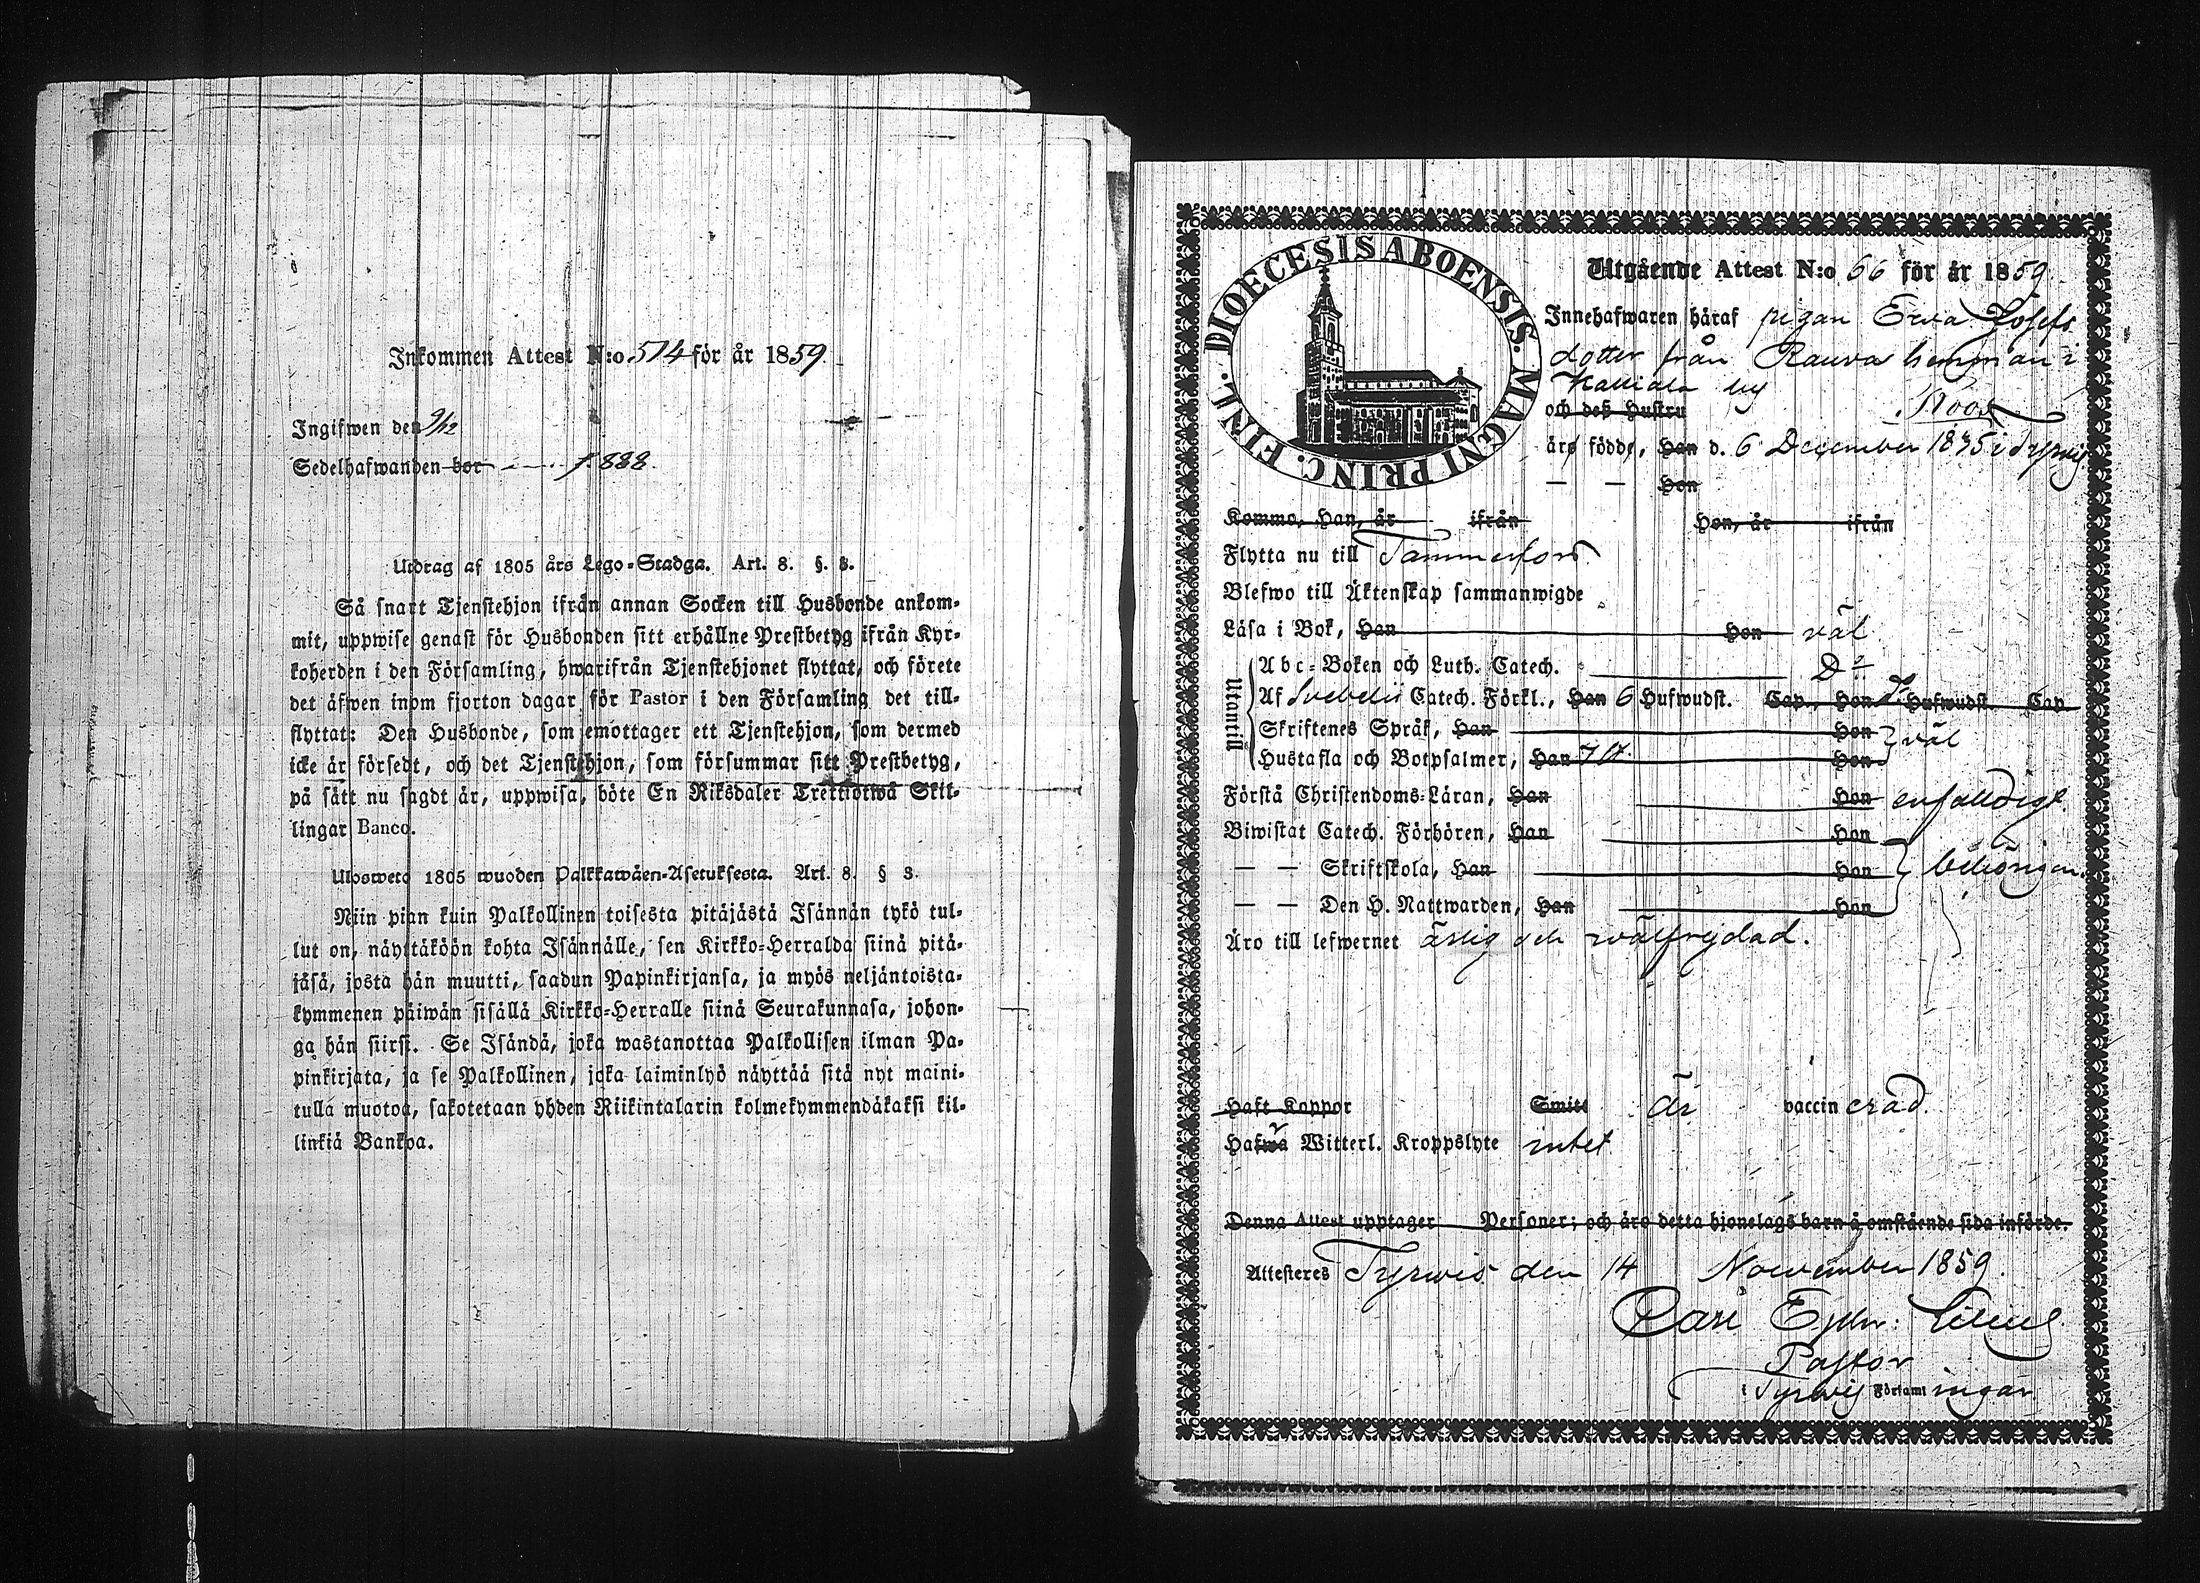 Inkommen Attest N:o 514 för år 1859
Ingifwen den 9/12
Sedelhafwanden bor f. 888.
Utdrag af 1805 års Lego-Stadga. Art. 8. §. 3.
Så snart Tjenstehjon ifrån annan Socken till Husbonde ankom-
mit, uppwise genast för Husbonden sitt erhållne Prestbetyg ifrån Kyr-
koherden i den Församling, hwarifrån Tjenstehjonet flyttat, och förete
det äfwen inom fjorton dagar för Pastor i den Församling det till-
flyttat: Den Husbonde, som emottager ett Tjenstehjon, som dermed
icke är försedt, och det Tjenstehjon, som försummar sitt Prestbetyg,
på sätt nu sagdt är, uppwisa, böte En Riksdaler Trettiotwå Skil-
lingar Banco.
Ulosweto 1805 wuoden Palkkawäen-Asetuksesta. Art. 8. § 3.
Niin pian kuin Palkollinen toisesta pitäjästä Isännän tykö tul-
lut on, näyttäköön kohta Isännälle, sen Kirkko-Herralda siinä pitä-
jäsä, josta hän muutti, saadun Papinkirjansa, ja myös neljäntoista-
kymmenen päiwän sisällä Kirkko-Herralle siinä Seurakunnasa, johon-
ga hän siirsi. Se Isändä, joka wastanottaa Palkollisen ilman Pa-
pinkirjata, ja se Palkollinen, joka laiminlyö näyttää sitä nyt maini-
tulla muotoa, sakotetaan yhden Riikintalarin kolmekymmendäkaksi kil-
linkiä Bankoa.
DIOECESIS ABOENSIS. MAGNI PRINC. FINL.
Utgående Attest N:o 66 för år 1859.
Innehafwaren häraf pigan Ewa Josefs
dotter från Rauva hemman i
Kalliala by
och deß Hustru Roos
äro födde, Han d. 6 December 1835 i Tyrvis
— — Hon
Kommo, Han, år ifrån Hon, år ifrån
Flytta nu till Tammerfors.
Blefwo till Äktenskap sammanwigde
Läsa i Bok, Han Hon väl
Utantill
Abc-Boken och Luth. Catech. D:o
Af Svebelii Catech. Förkl., Han 6 Hufwudst. Cap., Hon Hufwudst. Cap
Skriftenes Språk, Han Hon väl
Hustafla och Botpsalmer, Han Hon
Förstå Christendoms-Läran, Han Hon enfalldigt
Biwistat Catech. Förhören, Han Hon
— — Skriftskola, Han Hon behörigen.
— — Den H. Nattwarden, Han Hon
Äro till lefwernet ärlig och wälfrejdad.
Haft Koppor Smitt är vaccinerad.
Hafwa Witterl. Kroppslyte intet
Denna Attest upptager Personer; och äro detta hjonelags barn å omstående sida införde.
Attesteres Tyrwis den 14 November 1859.
Carl
Pastor
i Tyrvis Församlingar